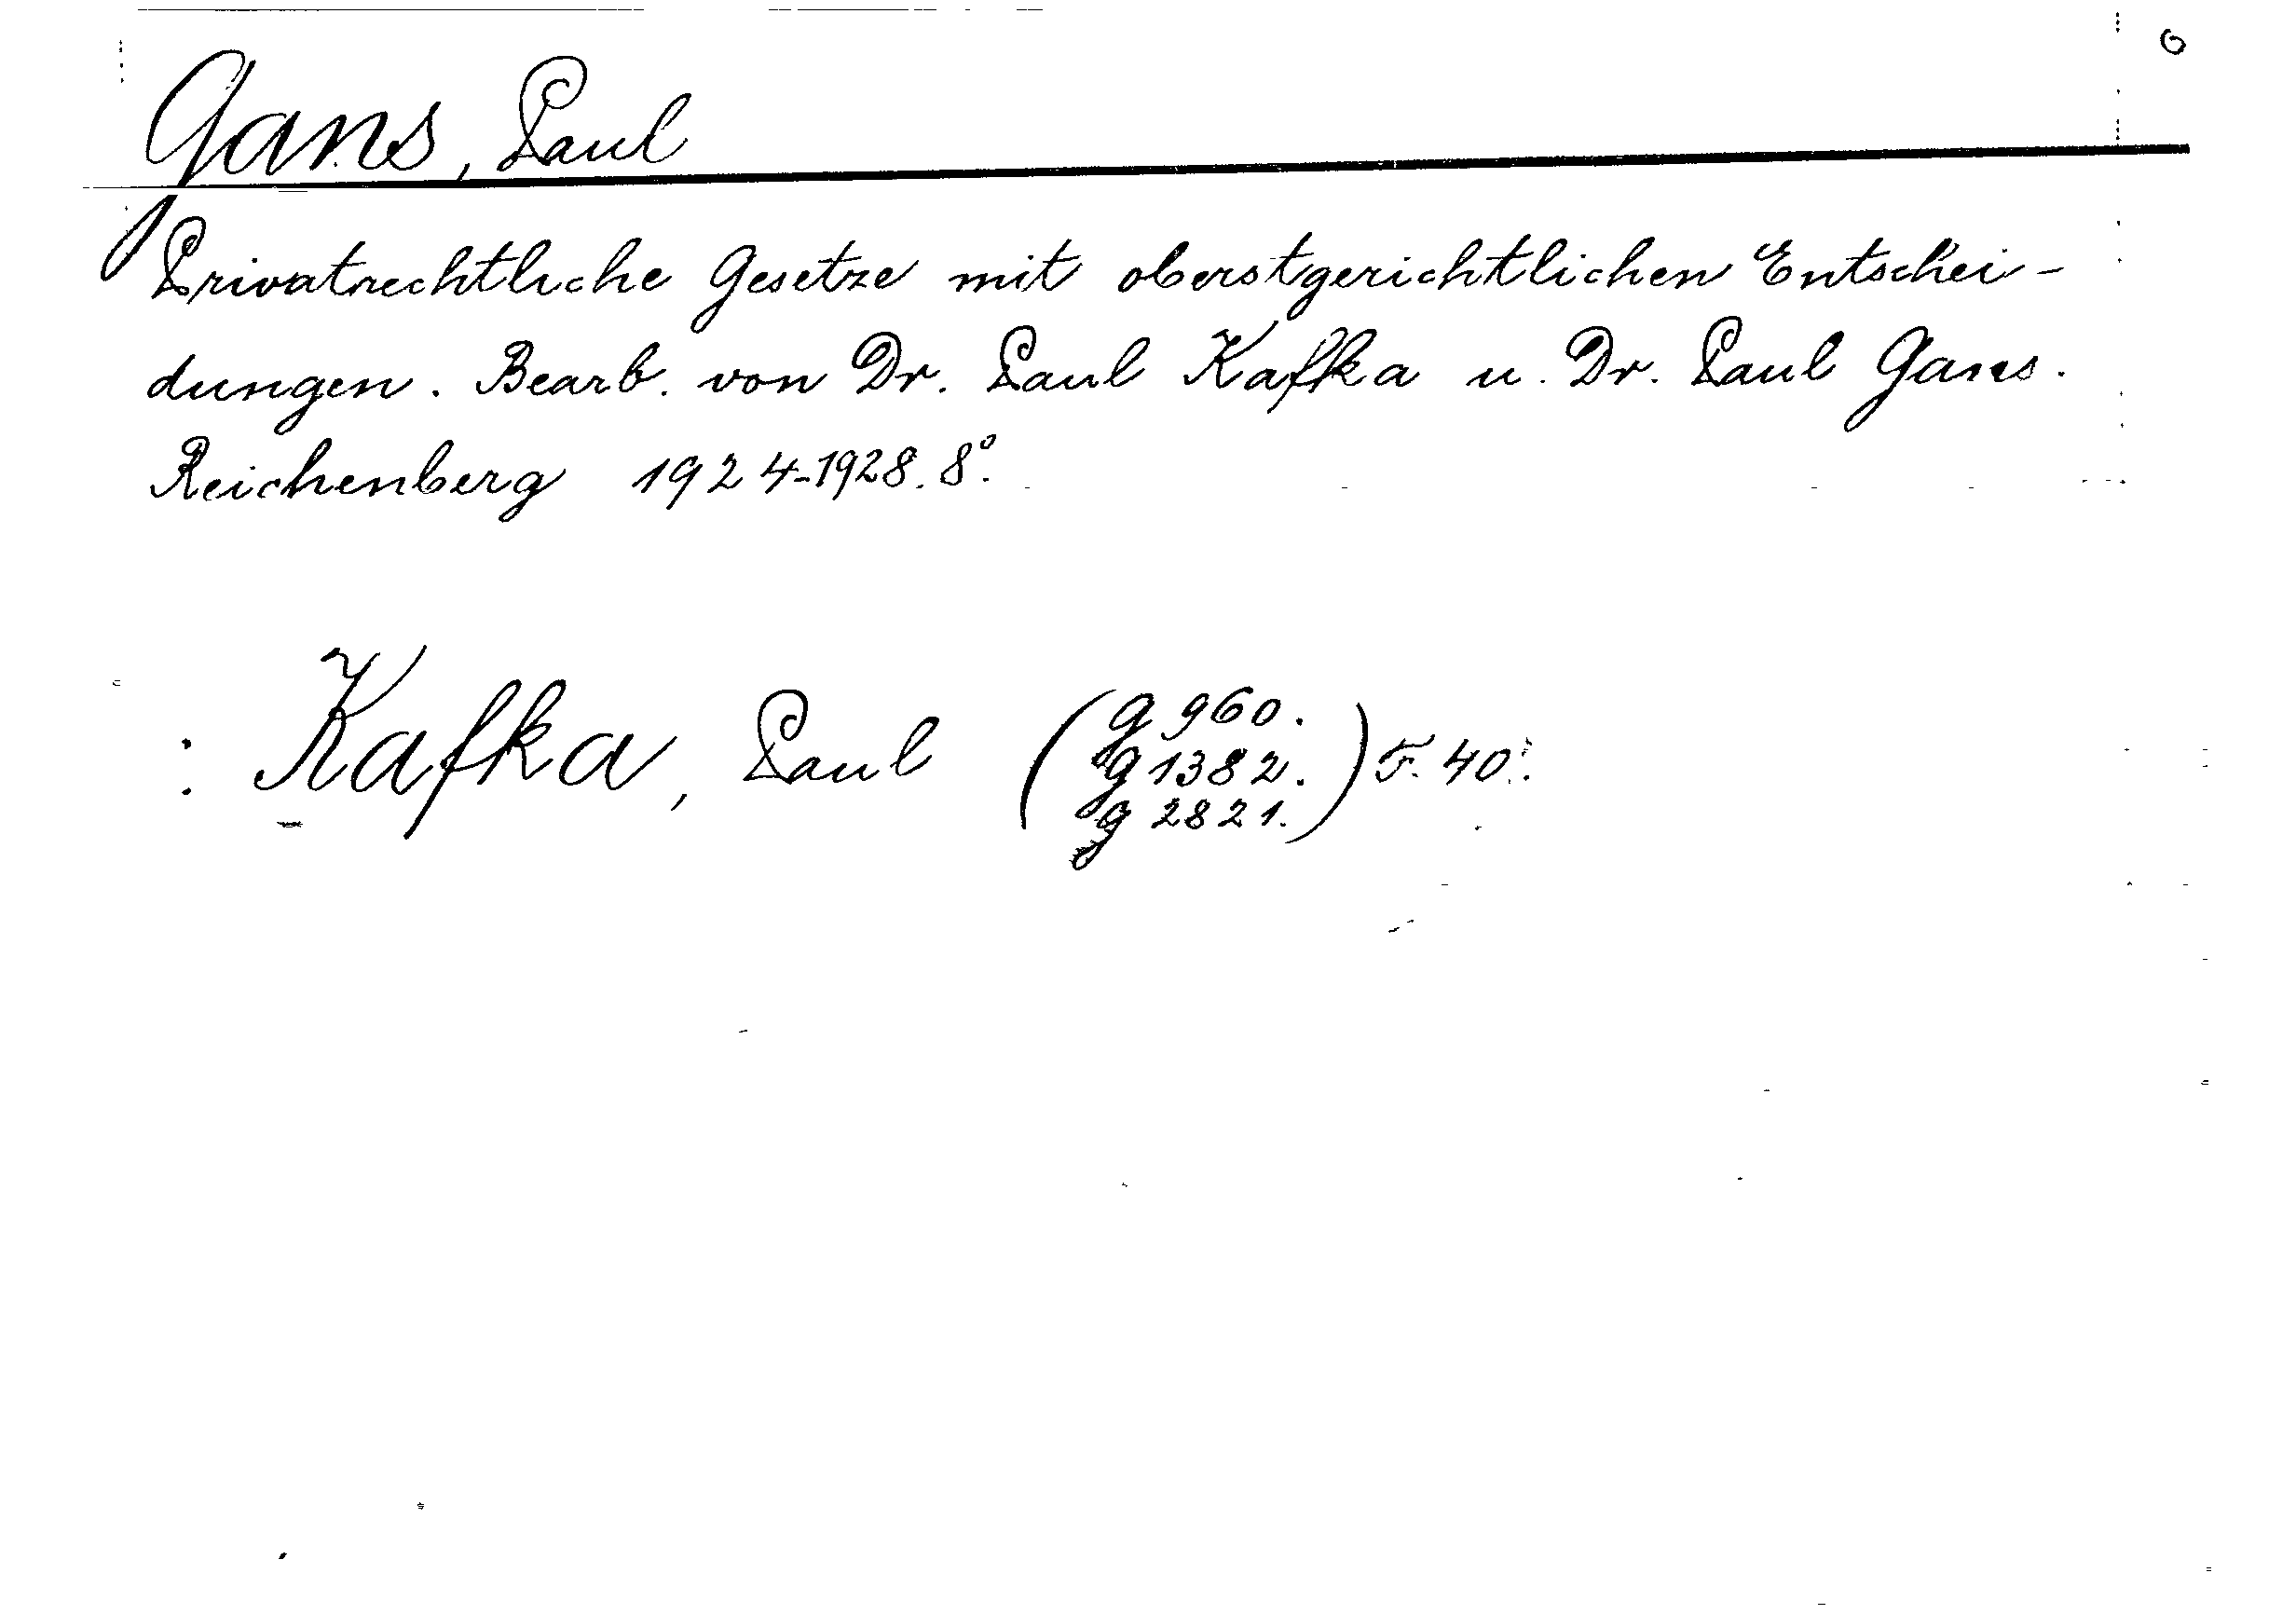 6
Gans, Paul
Privatrechtliche Gesetze mit oberstgerichtlichen Entschei-
dungen. Bearb. von Dr. Paul Kafka u. Dr. Paul Gans.
Reichenberg 1924-1928. 8°.
: Kafka, Paul
(g 960.
g 1382.
g 2821.) F. 40.